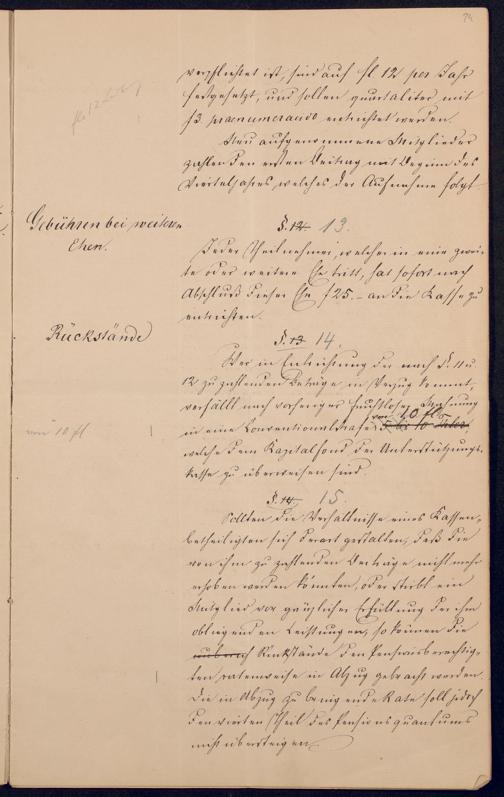 verpflichtet ist, sind auf fl 12 per Jahr
festgesetzt, und sollen quartaliter mit
f3 praenumerando entrichtet werden.
Neu aufgenommene Mitglieder
zahlen den ersten Beitrag mit Beginn des
Vierteljahres welches der Aufnahme folgt.
Gebühren bei weiteren
Ehen.
§. 12. 13.
Jeder Theilnehmer, welcher in eine zwei-
te oder weitere Ehe tritt, hat sofort nach
Abschluß dieser Ehe f 25.– an die Kasse zu
entrichten.
Rückstände
§. 13 14.
Wer in Entrichtung der nach §. 11 u.
12 zu zahlenden Beträge in Verzug kommt,
verfällt nach vorheriger fruchtloser Mahnung
in eine Conventionalstrafe von 10 fl
von 10 fl.
welche dem Kapitalfond der Unterstützungs-
kasse zu überweisen sind.
§. 14. 15.
Sollten die Verhältnisse eines Kassen-
betheiligten sich derart gestalten, daß die
von ihm zu zahlenden Beiträge nicht mehr
erhoben werden könnten, oder stirbt ein
Mitglied vor gänzlicher Erfüllung der ihm
obliegenden Leistungen, so können die
Rückstände den Pensionsberechtig-
ten ratenweise in Abzug gebracht werden.
Die in Abzug zu bringende Rate soll jedoch
den vierten Theil des Pensionsquantums
nicht übersteigen.